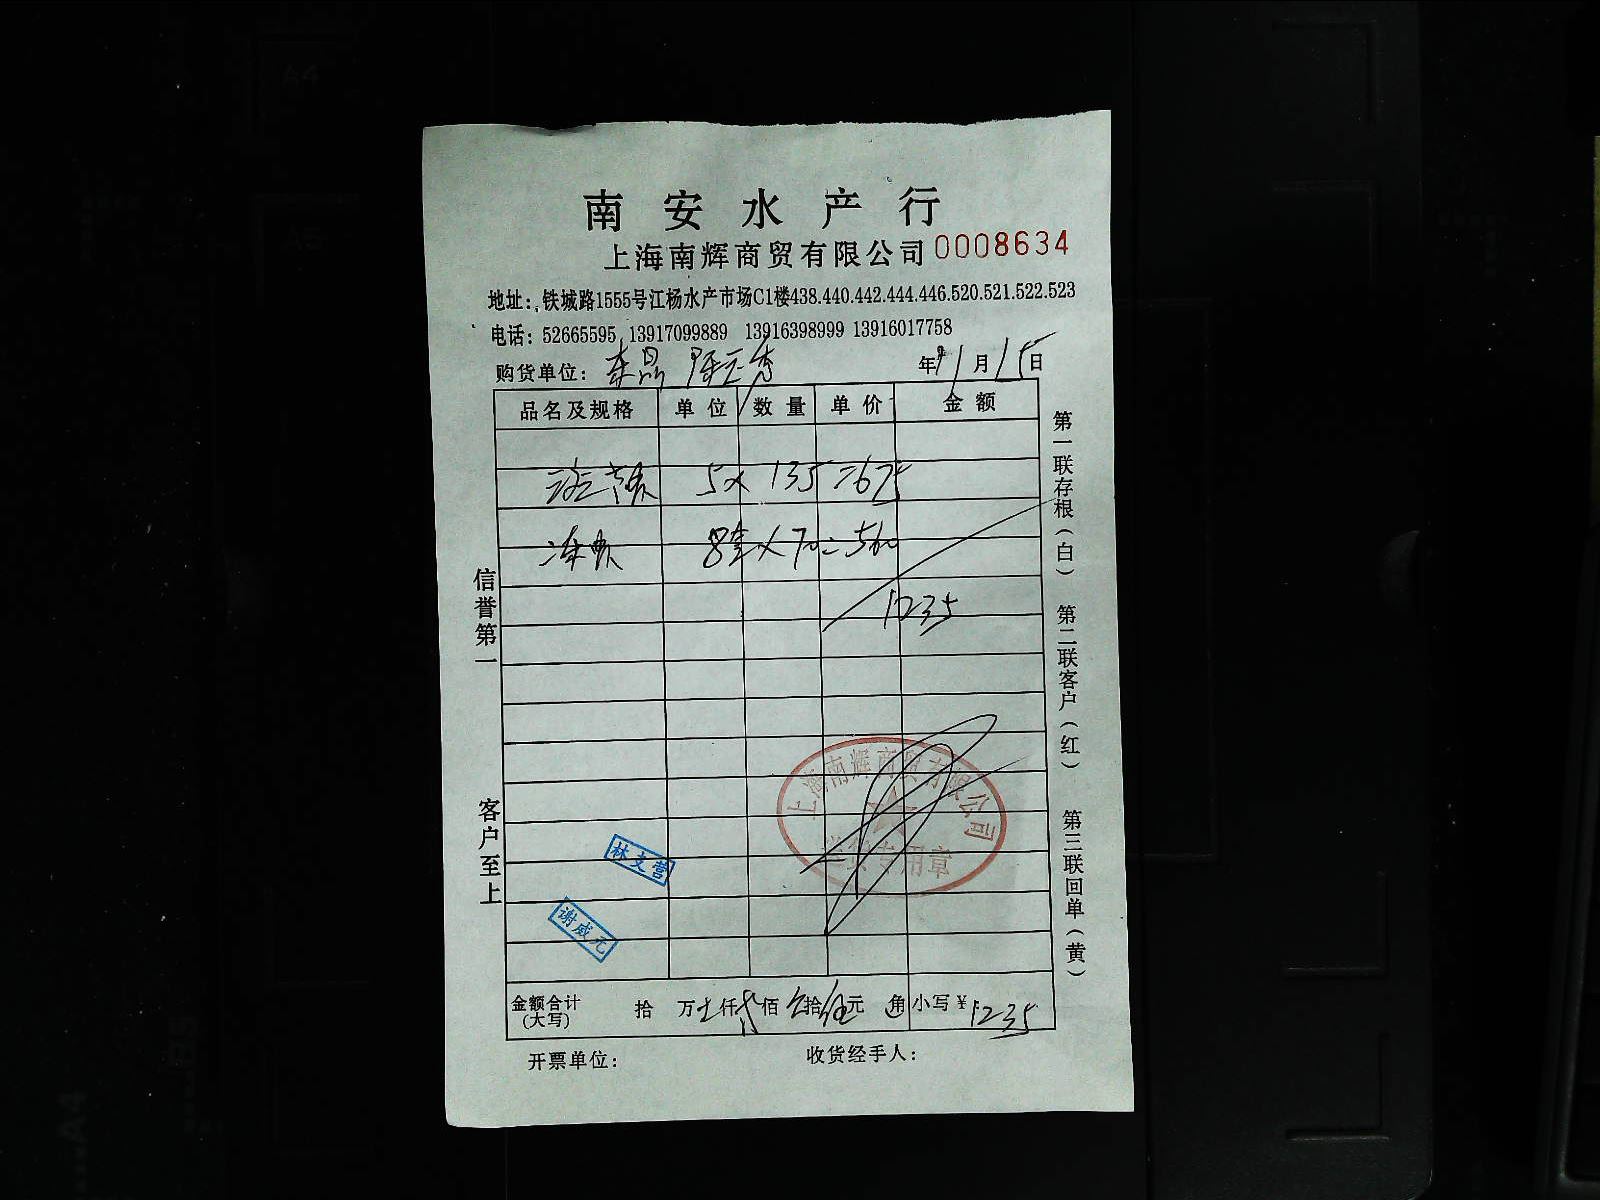 南安水产行
上海南辉商贸有限公司 0008634
地址：铁城路1555号江杨水产市场C1楼438.440.442.444.446.520.521.522.523
电话：52665595 13917099889 13916398999 13916017758
购货单位： 年 11 月 15 日
品名及规格 单位 数量 单价 金额
5× 135 =675
8 × 70 = 560
1235
信誉第一
客户至上
第一联存根（白） 第二联客户（红） 第三联回单（黄）
上海南辉商贸有限公司
专用章
林支营
谢威元
金额合计（大写） 拾 万 仟 佰 拾 伍 元 角 小写￥ 1235
开票单位： 收货经手人：